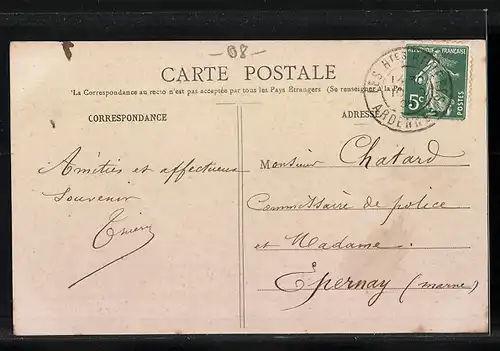 -08-
CARTE POSTALE
"La Correspondance au recto n'est pas acceptée par tous les Pays Étrangers (Se renseigner à la Poste)
CORRESPONDANCE
ADRESSE
RÉPUBLIQUE FRANÇAISE
5c
POSTES
ARDENNES
Amitiés et affectueux
souvenir
Thiéry
Monsieur Chatard
Commissaire de police
et Madame
Épernay (marne)